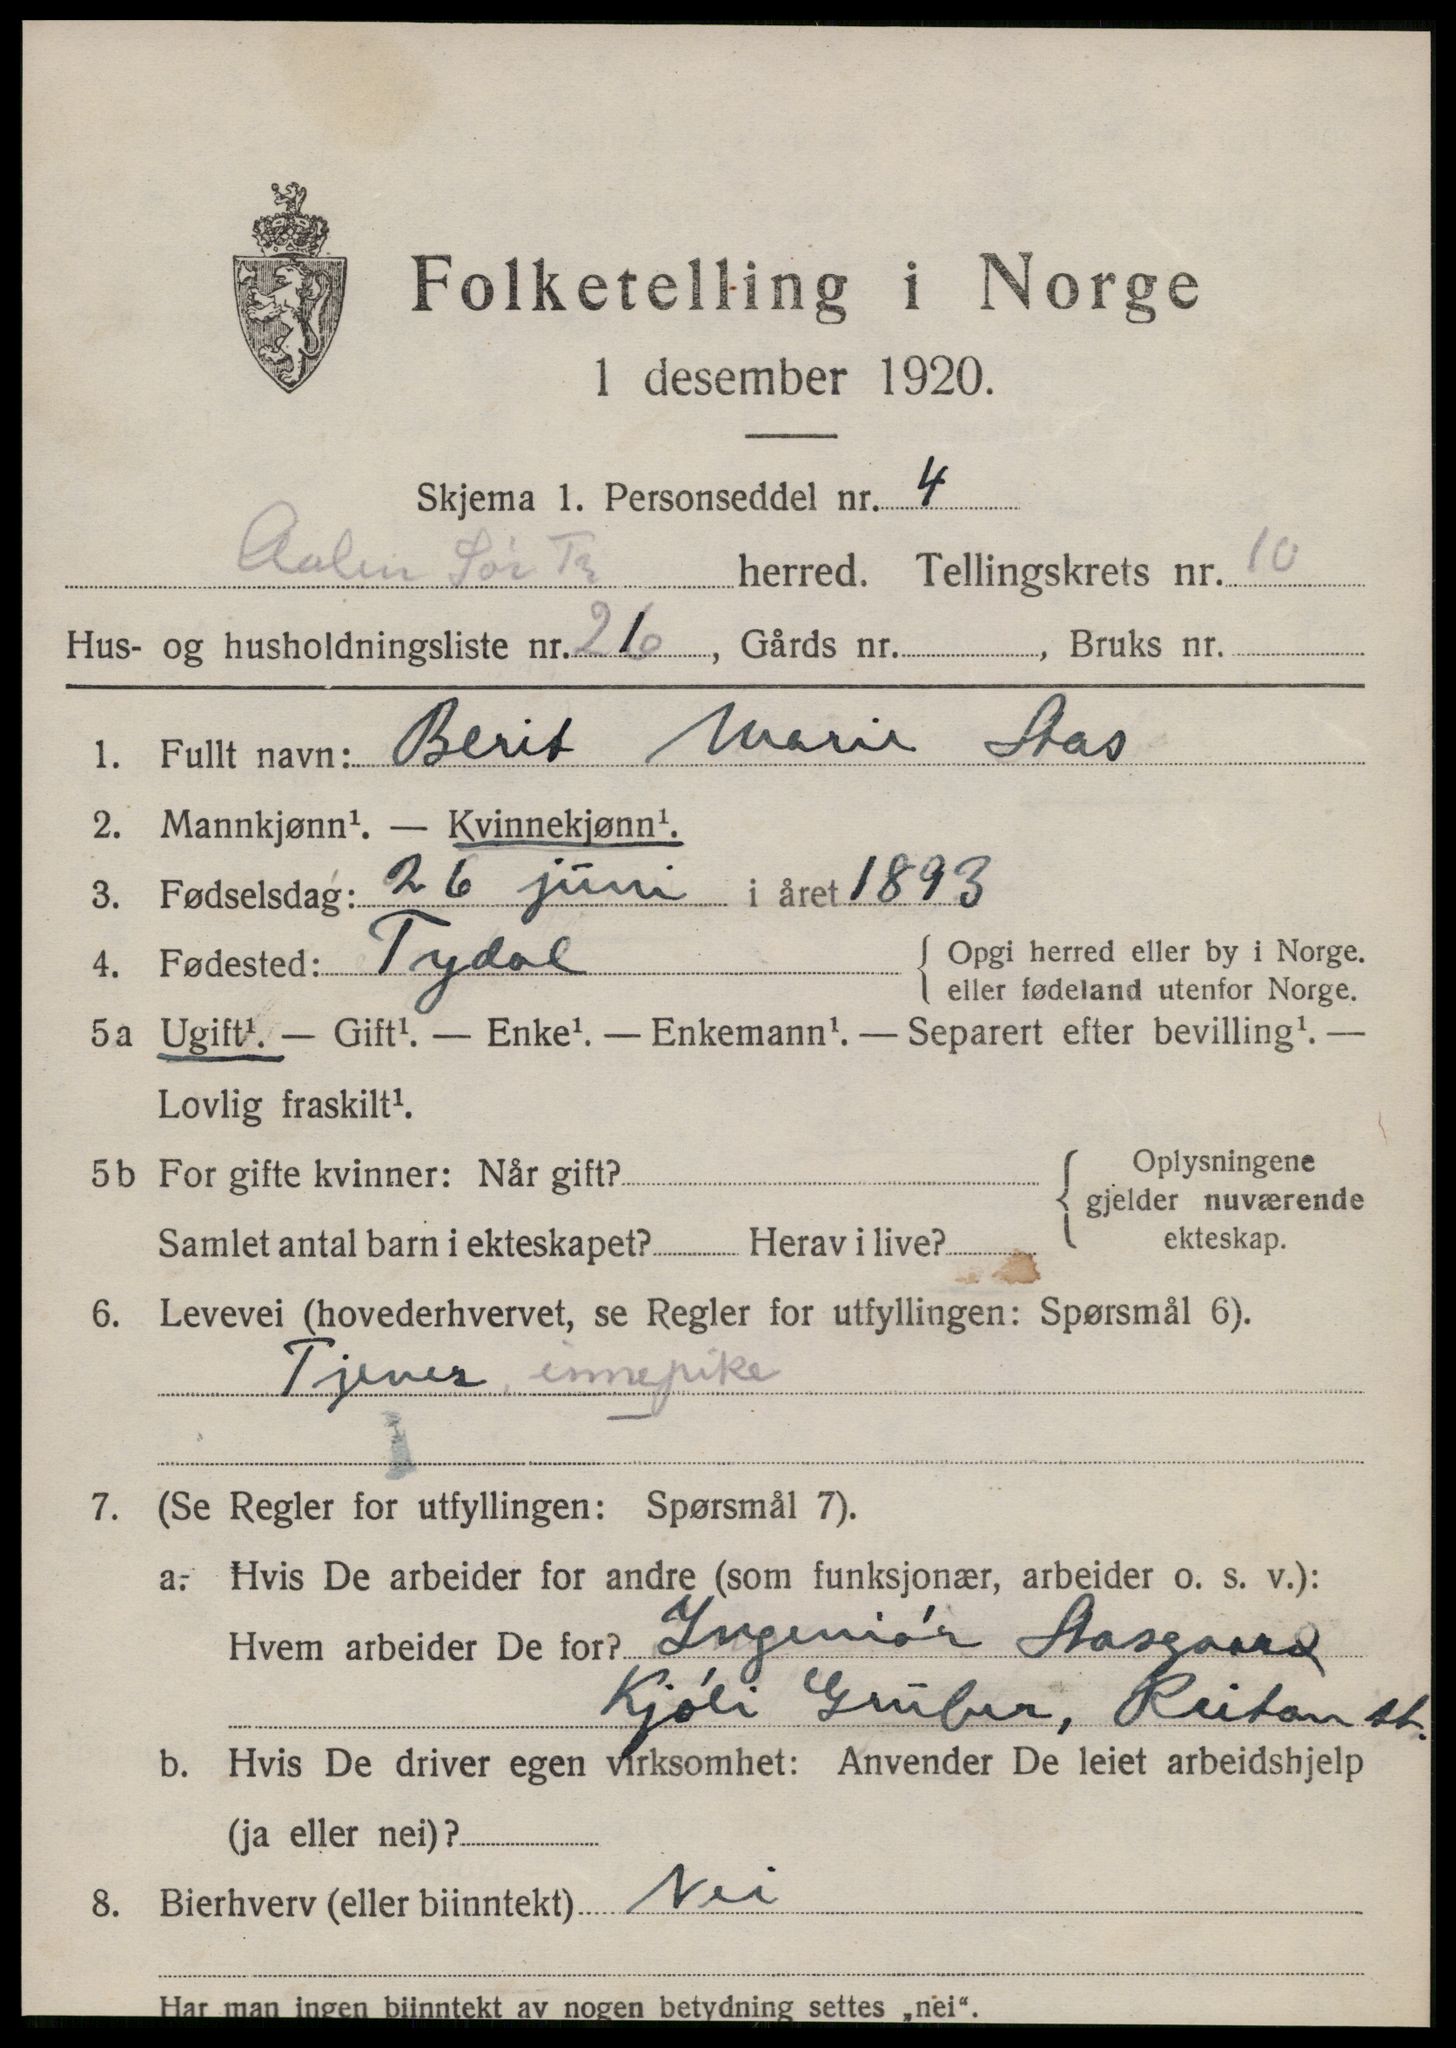 Folketelling i Norge
1 desember 1920.
Skjema 1. Personseddel nr. 4
Aalen Sør Tr herred. Tellingskrets nr. 10
Hus- og husholdningsliste nr. 26, Gårds nr. , Bruks nr.
1. Fullt navn: Berit Marie Aas
2. Mannkjønn¹. — Kvinnekjønn¹.
3. Fødselsdag: 26 juni i året 1893
4. Fødested: Tydal { Opgi herred eller by i Norge.
eller fødeland utenfor Norge.
5a Ugift¹. — Gift¹. — Enke¹. — Enkemann¹. — Separert efter bevilling¹. —
Lovlig fraskilt¹.
5b For gifte kvinner: Når gift?
Samlet antal barn i ekteskapet? Herav i live?
{ Oplysningene
gjelder nuværende
ekteskap.
6. Levevei (hovederhvervet, se Regler for utfyllingen: Spørsmål 6).
Tjener, innepike
7. (Se Regler for utfyllingen: Spørsmål 7).
a. Hvis De arbeider for andre (som funksjonær, arbeider o. s. v.):
Hvem arbeider De for? Ingeniór Aasgaard
Kjóli Gruber, Reitan st.
b. Hvis De driver egen virksomhet: Anvender De leiet arbeidshjelp
(ja eller nei)?
8. Bierhverv (eller biinntekt) Nei
Har man ingen biinntekt av nogen betydning settes „nei“.